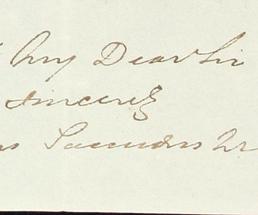 My Dear Sir
sincerely
Saunders Jr